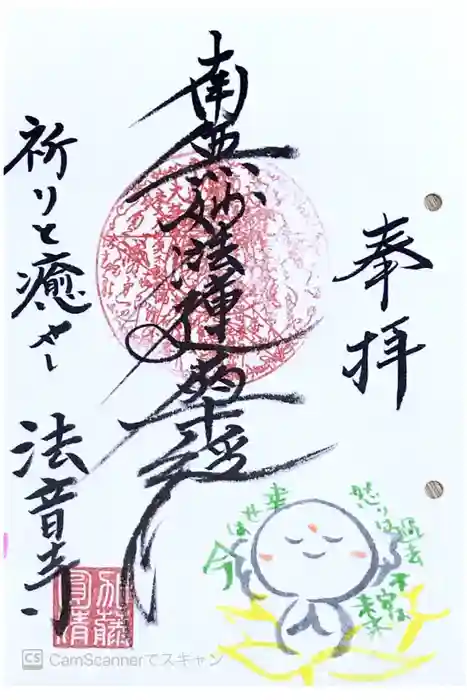 奉拝
南無妙法蓮華経
祈りと癒やし
法音寺
怒りは過去
不安は未来
幸せは
今
加藤
CS CamScannerでスキャン